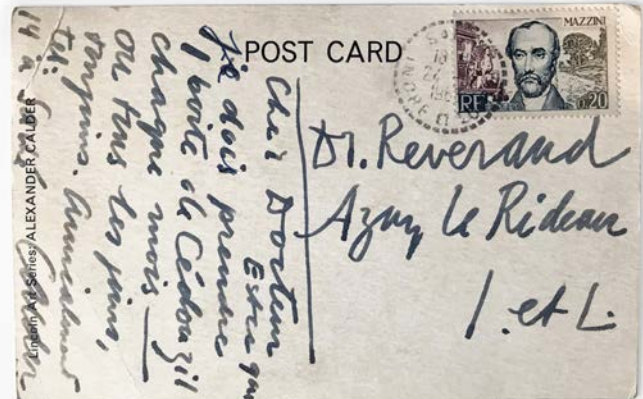 POST CARD
MAZZINI
RF
0.20
Dr. Reverand
Azay Le Rideau
I. et L.
Cher Docteur
Est ce que
je dois prendre
1 boite de Cédouzil
chaque mois
ou tous les jours,
toujours. Amicalement
tél: 14 à Saché Calder
Lincoln Art Series: ALEXANDER CALDER